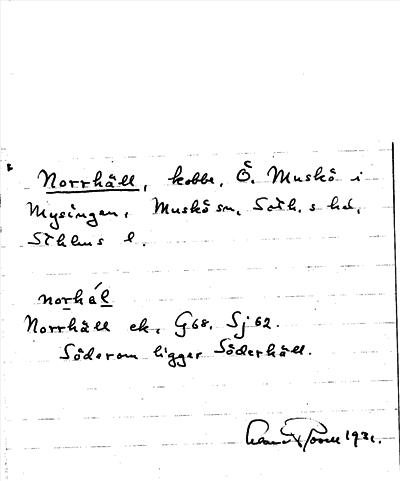 Norrhäll, kobbe, Ö. Muskö i
Mysingen, Muskö sn, Soth.s hd,
Sthlms l.
norhá̈l
Norrhäll ek. G 68. Sj 62.
Söderom ligger Söderhäll.
1931.